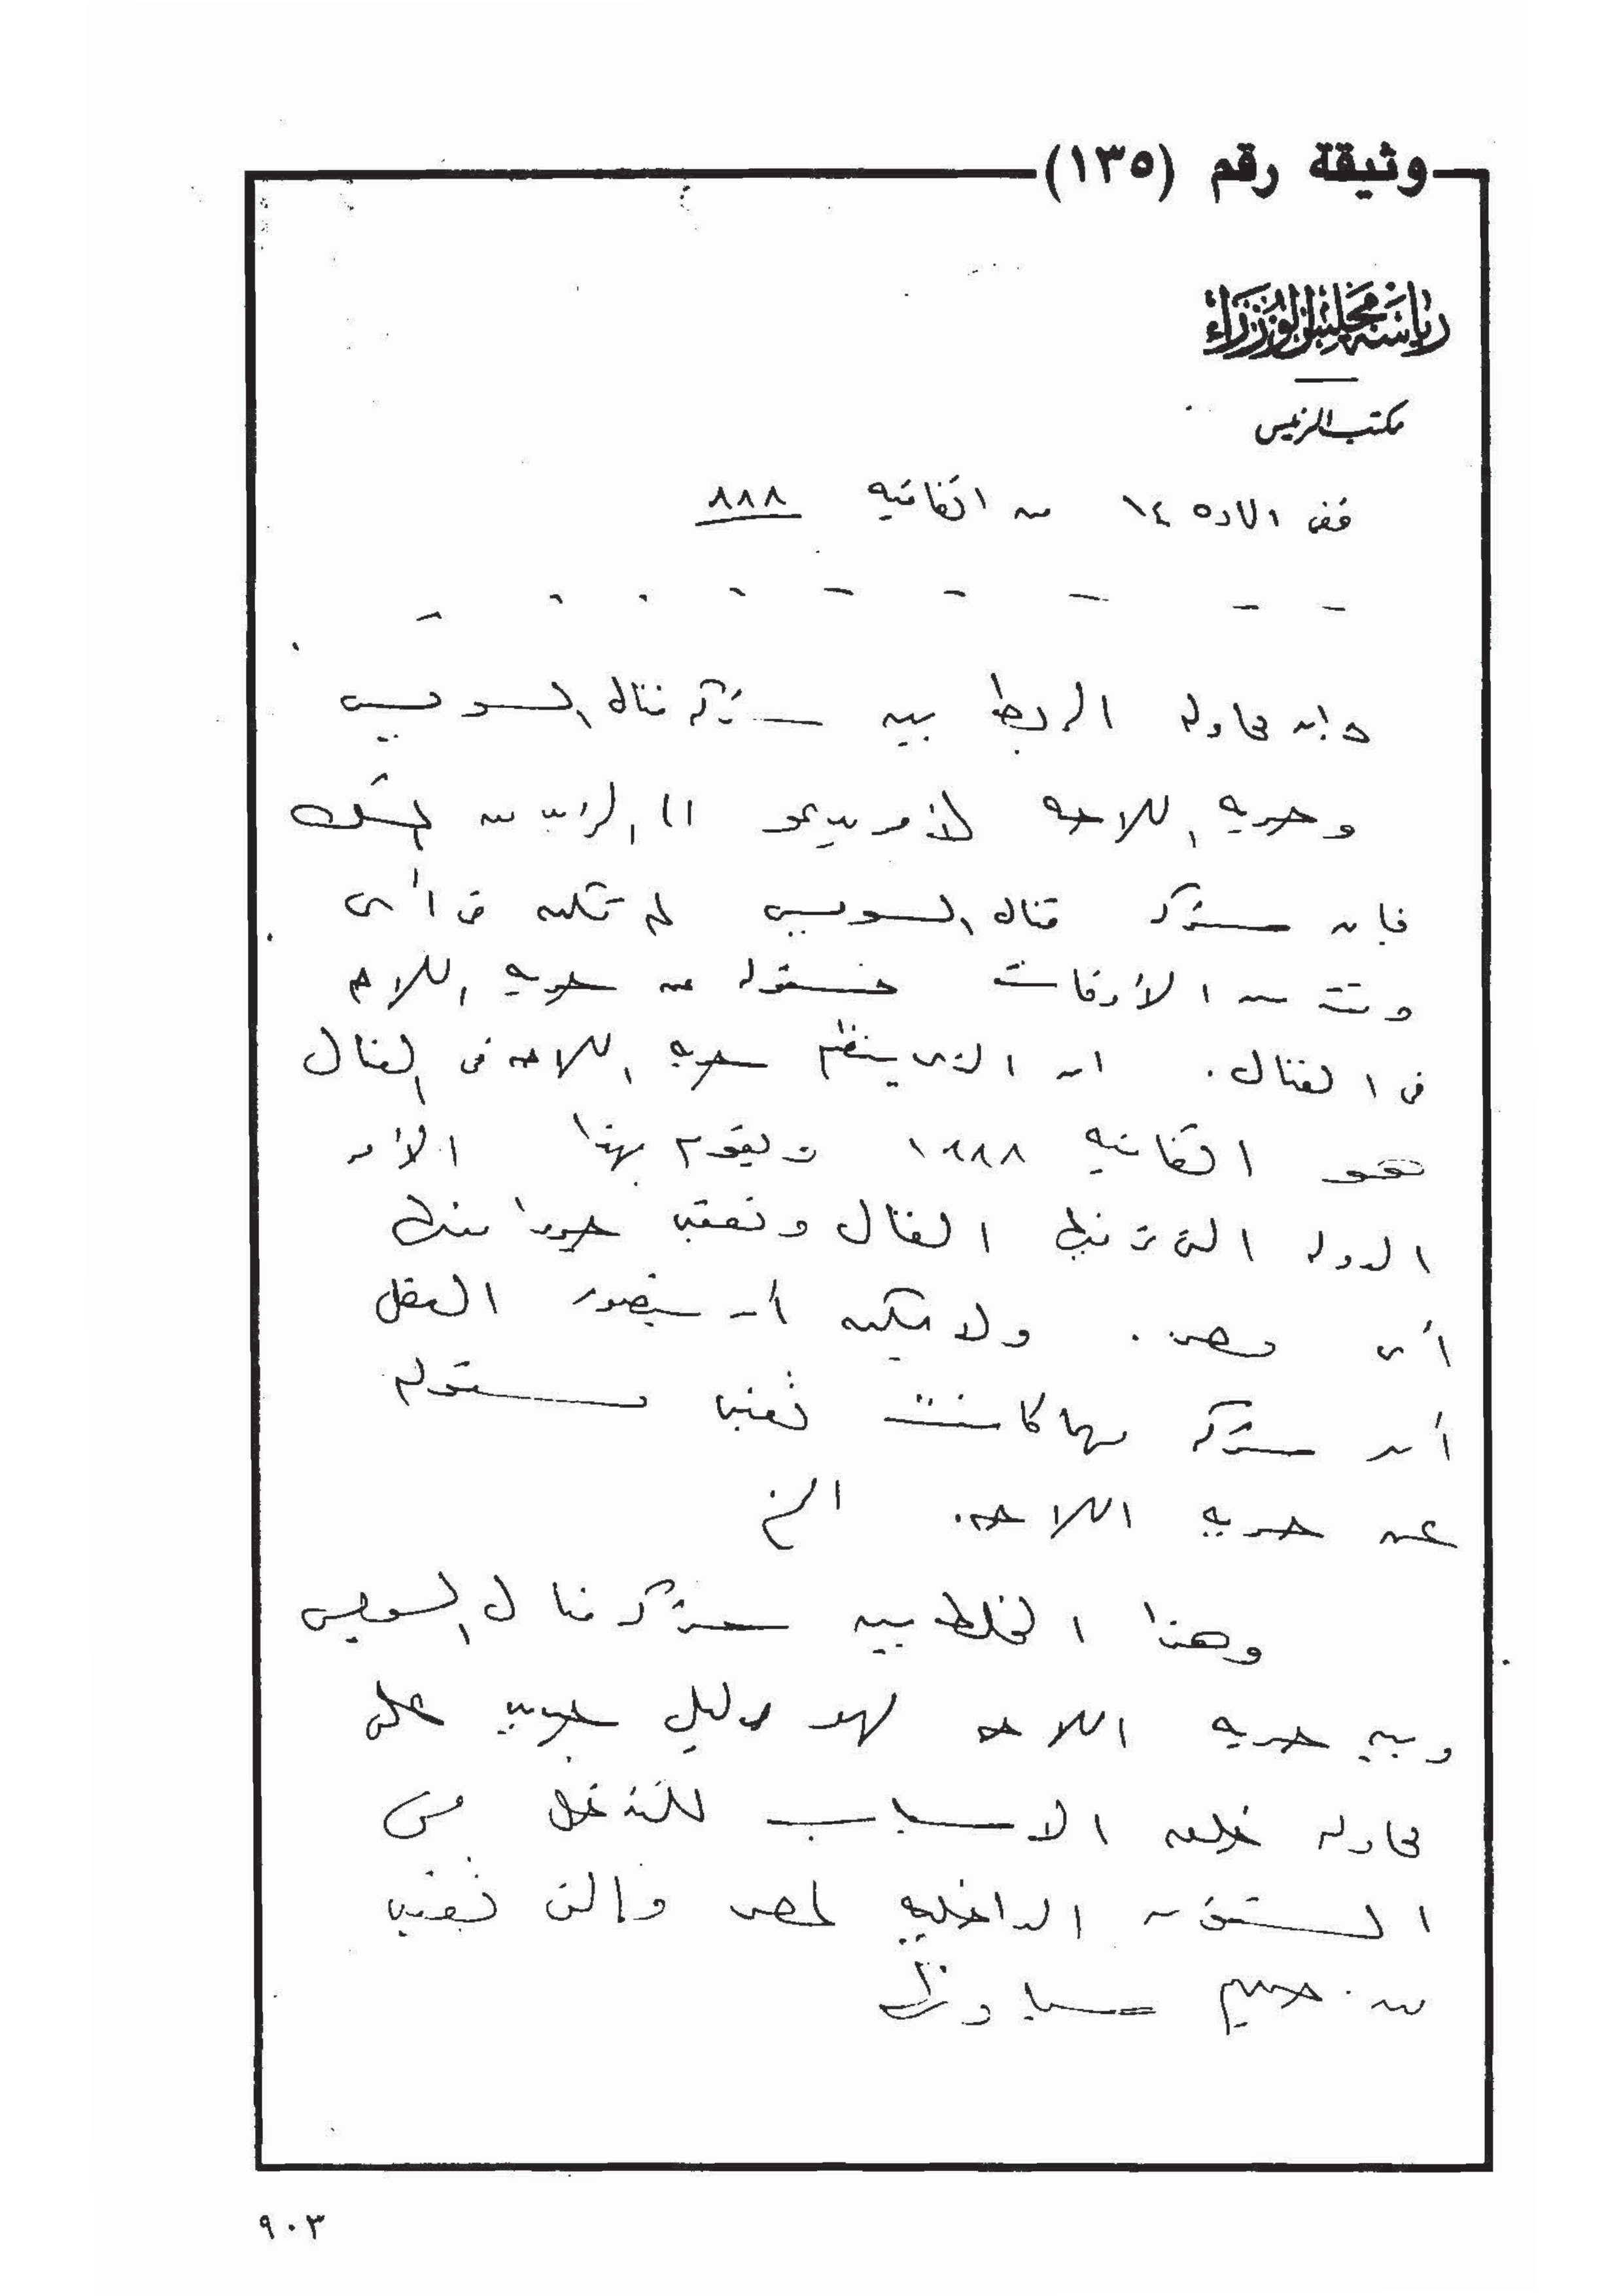 وثيقة رقم (١٣٥)
رياسة مجلس الوزراء
مكتب الرئيس
فى الماده ١٤ من اتفاقيه ٨٨٨
وان محاوله الربط بين شركه قناه السويس
وحريه الملاحه لأمر يدعو الى الريب الشك
فان شركه قناه السويس لم تكن فى أى
وقت من الأوقات مسئوله عن حريه الملاحه
فى القنال. ان الذى ينظم حريه الملاحه فى القنال
هو اتفاقيه ١٨٨٨ ويقوم بهذا الأمر
الدوله التى القنال وتعتبر جزءا منها
أى مصر. ولا يمكن أن يتصور العقل
أن شركه مهما كانت تعتبر مسئوله
عن حريه الملاحه. الخ
وهذا الخلط بين شركه قنال السويس
وبين حريه الملاحه لهو دليل على
محاوله خلق الاسباب للتدخل فى
الشئون الداخليه لمصر والتى تعتبر
من صميم سيادتها
٩٠٣